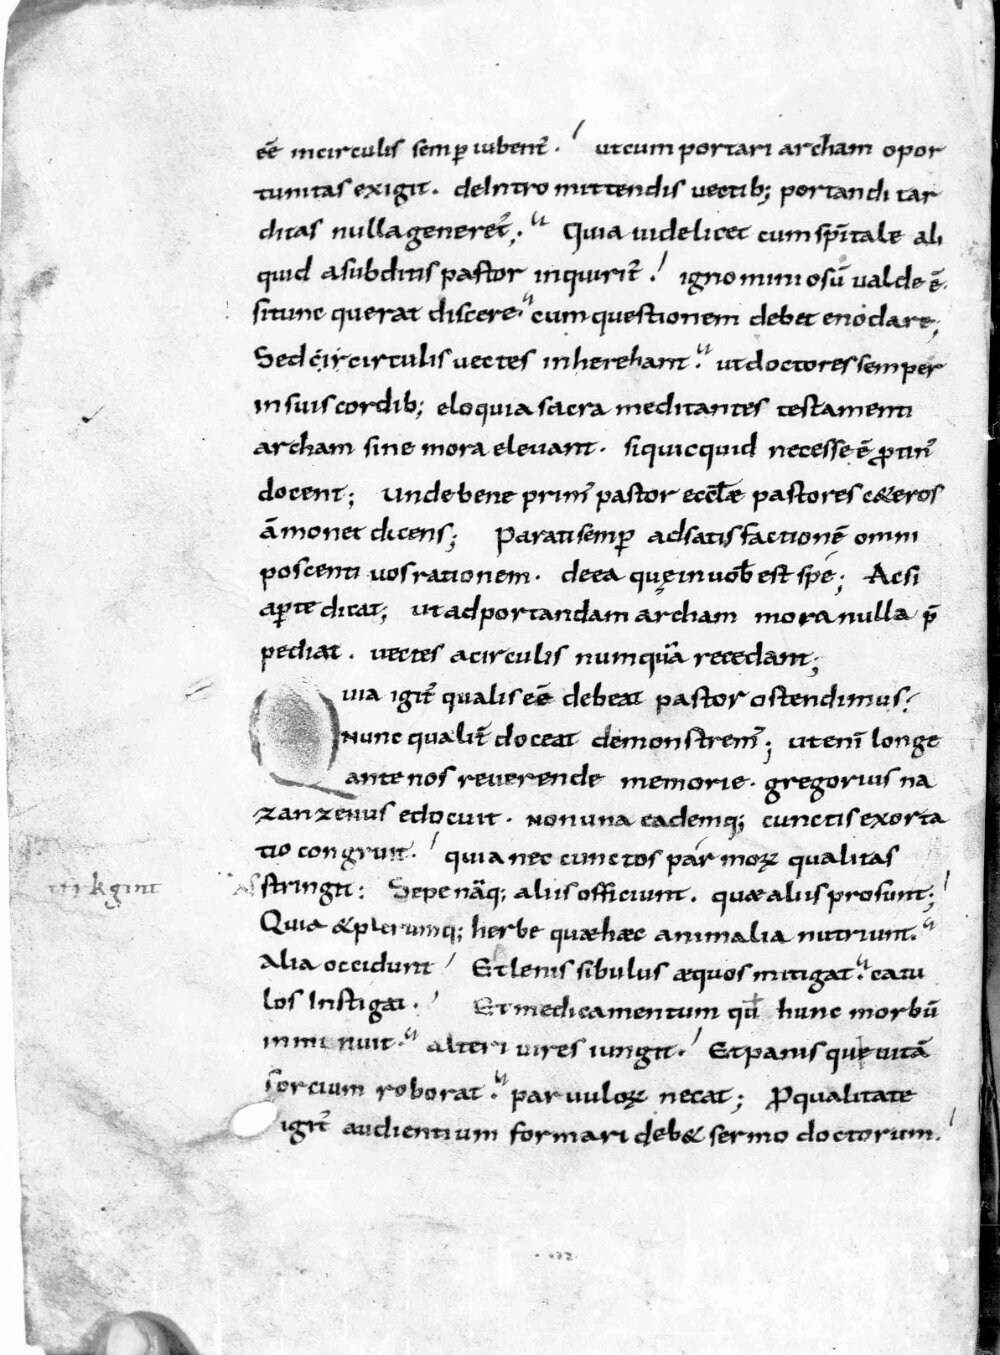 eē incirculis semp iubent᷒. utcum portari archam opor
tunitas exigit. deIntro mittendis vectib; portandi tar
ditas nulla generet᷒; Quia uidelicet cum spīritale ali
quid asubditis pastor inquirit᷒. ignominiosū valde ē.
situnc querat discere. cum questionem debet enodare;
Sed circirculis vectes inherebant. ut doctores semper
insuis cordib; eloquia sacra meditantes testamenti
archam sine mora elevant. siquicquid necesse ē ꝓtin᷒
docent; Unde bene prim᷒ pastor eccl̄æ pastores c&eros
āmonet dicens; Parati semꝑ adsatisfactionē omni
poscenti vos rationem. deea quę inuob̄ est spe; Acsi
aꝑte dicat; ut adportandam archam mora nulla p̄
pediat. vectes acirculis numquā recedant;
Quia igit᷒ qualis eē debeat pastor ostendimus.
Nunc qualit᷒ doceat demonstrem᷒; uteni longe
ante nos reverende memorie. gregorius na
zanzenus edocuit. Non una eademq; cunctis exorta
tio congruit. quia nec cunctos par moꝝ qualitas
Astringit: Sepe nāq; aliis officiunt. quæ aliis prosunt;
Quia &plerumq; herbe quæ hæc animalia nutriunt.
Alia occidunt Et lenis sibulus æquos mitigat. catu
los Instigat. Et medicamentum qd̄ hunc morbū
inminuit. alteri vires iungit. Et panis que uitā
forcium roborat. parvuloꝝ necat; ꝓqualitate
igit᷒ audientium formari deb& sermo doctorum.